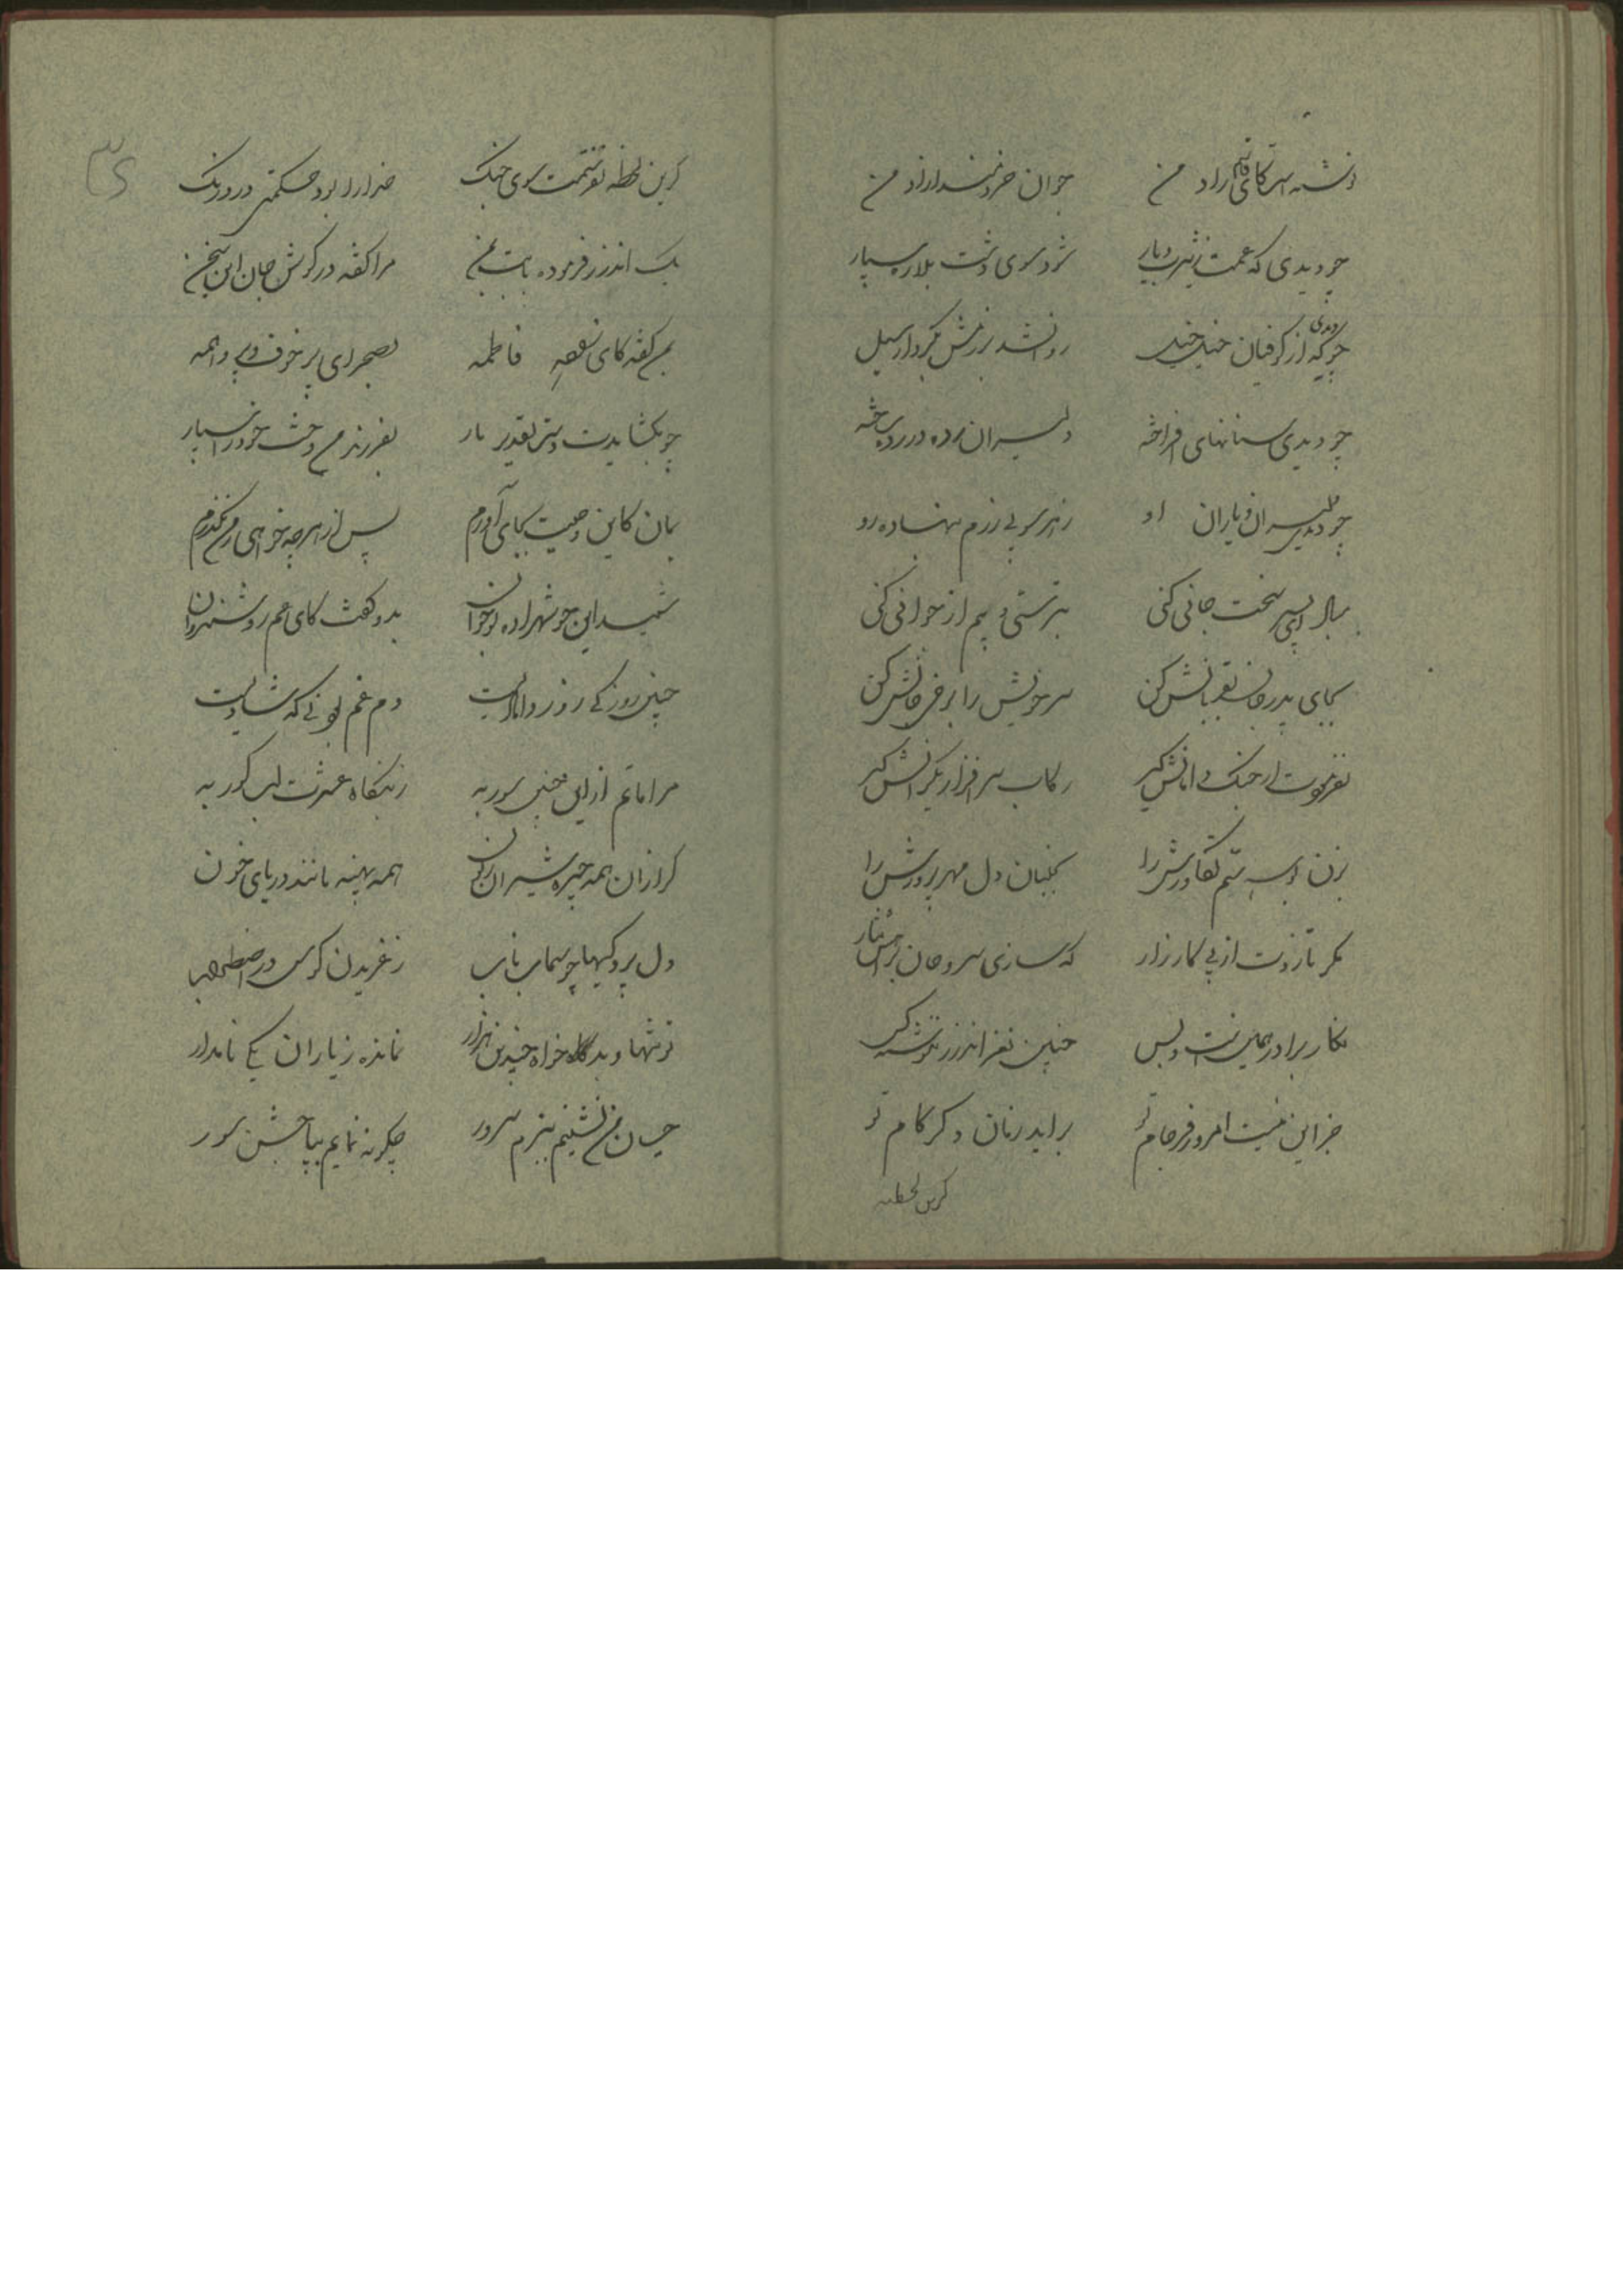 نوشته است کای قاسم راد من
جوان خردمند آزاد من
چو دیدی که عمت ز یثرب دیار
شود سوی دشت بلا رهسپار
چو دیدی که از کوفیان خیل خیل
روان شد برزمش بکردار سیل
چو دیدی سنانهای افراخته
دلیران رده در رده ساخته
چو دیدی دلیران و یاران او
ز هر سو پی رزم بنهاده رو
مبادا ای پسر سخت جانی کنی
بترسی و بیم از جوانی کنی
بجای پدر جان بقربانش کن
سر خویش را برخی جانش کن
نفرمودت ار جنگ دامانش گیر
رکاب سرافراز یکرانش گیر
بزن بوسه سم تکاورش را
بجنبان دل مهر پرورش را
مگر تا زودت از پی کارزار
که سازی سر و جان براهش نثار
بکار برادر همین است و بس
چنین نغز اندرز ننوشته کس
جز این نیست امروز فرجام تو
براید زمان دگر کام تو
کزین لحظه
کزین لحظه نوشتمت سوی جنگ
خدا را بود حکمتی در درنگ
یک اندرز فرموده بابت بمن
مرا گفته در گوش جان این سخن
بمن گفته کای بضعه فاطمه
بصحرای پر خوف و پر واهمه
چو بگشایدت دست تقدیر بار
بفرزند من دخت خود را سپار
بمان کاین وصیت بجای آورم
پس از هر چه خواهی ز من نگذرم
شنید این چو شهزاده نوجوان
بدو گفت کای عم روشن روان
چنین روز کی روز دامادیست
دم غم بود نی که شادیست
مرا ماتم از این چنین سور به
ز بنگاه عشرت لب گور به
گرازان همه چیره شیران
همه پهنه مانند دریای خون
دل پردگیها چو سیماب ناب
ز غریدن کوس در اضطراب
تو تنها و بدخواه چندین هزار
نمانده ز یاران یکی نامدار
چسان من نشینم ببزم سرور
چگونه نمایم بپا جشن سور